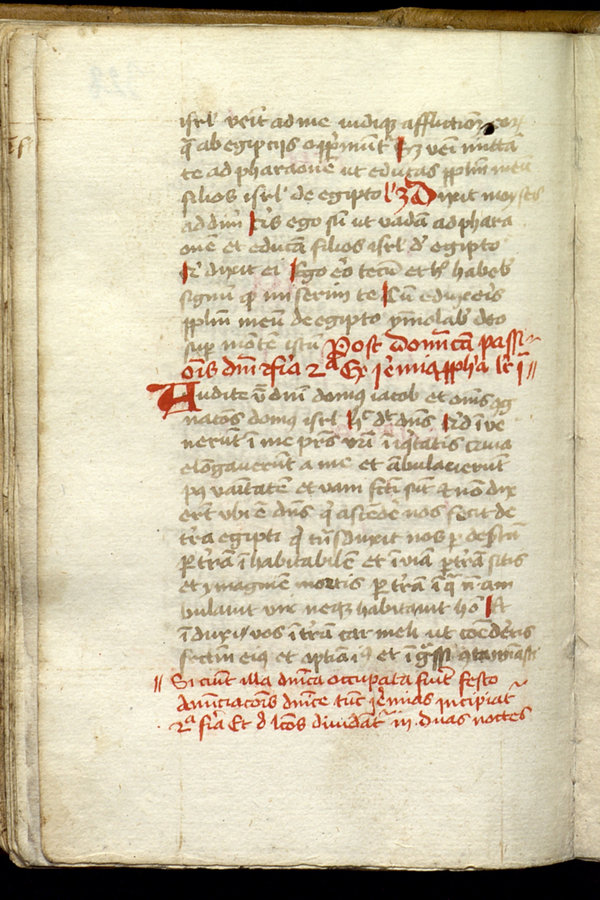 isrl' venit ad me vidiq; afflictionē eor
q̄ ab egipcijs opp̄mūnt' Sz veni mittā
te ad pharaonē ut educas pplm̄ meū
filios isrl' de egipto l' 3 Dixit moyses
ad dn̄m Q's ego sū ut vadā ad phara
onē et educā filios isrl' d' egipto
Et dixit ei Ego ero tecū et h' habeb'
signū q' miserim te Cū eduxeris
pplm̄ meū de egipto ymolab' deo
sup mōte istū Post domīcā passi
ōis dn̄i f̄ia 2ª Ex Jeremia ppha lc̄ i
Audite v̄ dn̄i domꝰ iacob et om̄s cog
nacōes domꝰ isrl h' dt dn̄s Qd īve
nerūt ī me pr̄es vr̄i īiqtatis quia
elōgaverūt a me et ābulaverūt
pꝰ vanitatē et vani fcti sūt & nō dix
erūt vbi ē dn̄s q' ascēde nos fecit de
tr̄a egipti q' trāsduxit nos p desertū
p tr̄ā īhabitabilē et īviā p tr̄ā sitis
et ymaginē mortis p tr̄ā ī q̄ nō am
bulauit vir neqz habitauit hō Et
īduxi vos ī tr̄ā carmeli ut comēderetis
fructū eiꝰ et optīa iꝰ et īgr̄ssi ꝯtaminasti
Si aut̄ illa dn̄ica occupata fuit festo
Anūciacōis dn̄ice tūc ieremias incipiat'
2ª f̄ia Et d' lcōes dividāt' in duas noctes